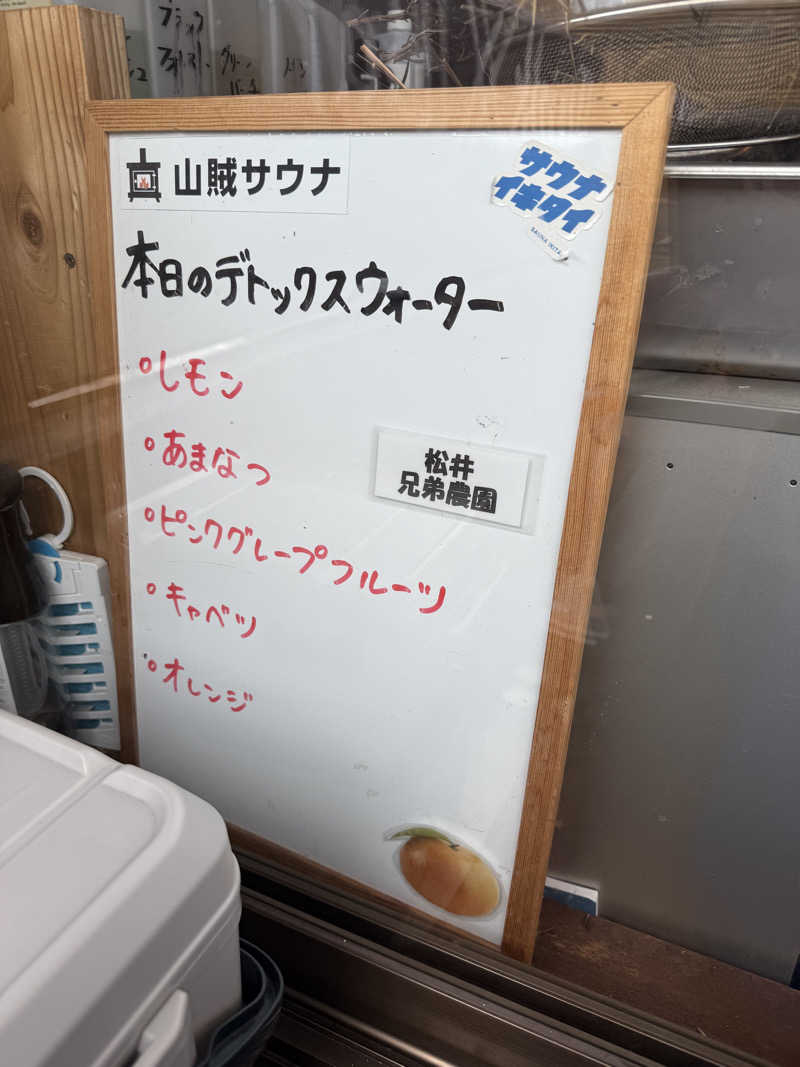 ブラック
フォレスト
グリーン
山賊サウナ
サウナ
イキタイ
SAUNA IKITAI
本日のデトックスウォーター
°レモン
°あまなつ
松井
兄弟農園
°ピンクグレープフルーツ
°キャベツ
°オレンジ